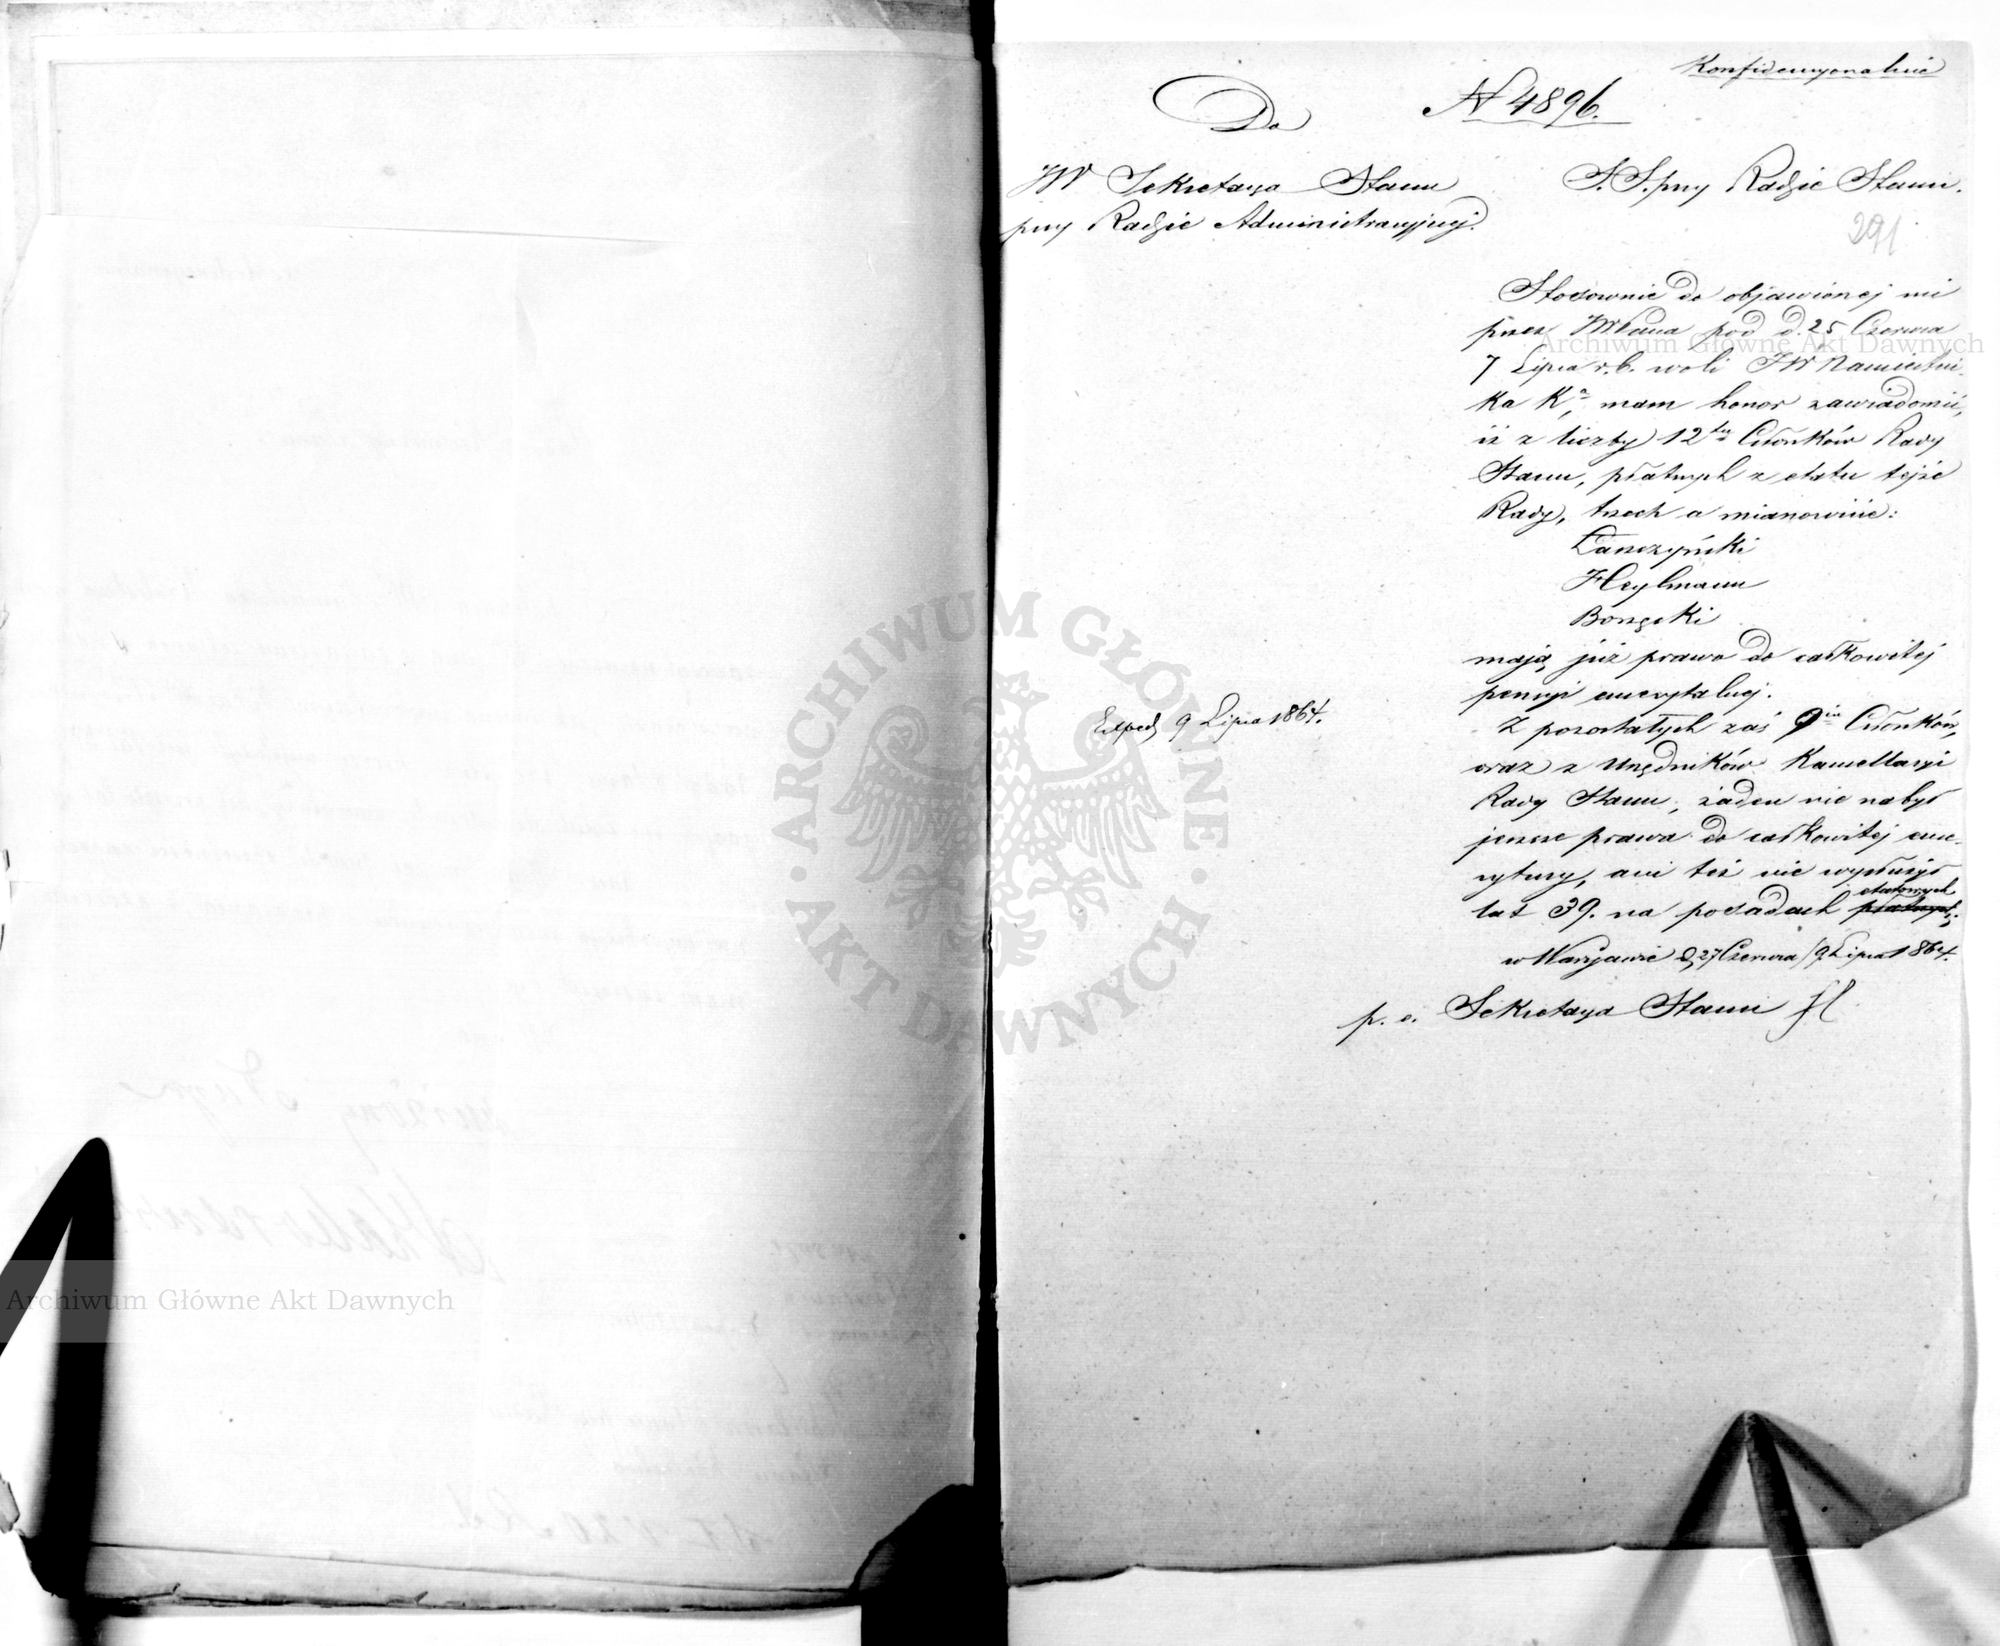 Konfidencyonalnie
Do
N 4896.
JW Sekretarza Stanu
przy Radzie Administracyjnej.
S. S. przy Radzie Stanu.
291
Stosownie do objawionej mi
przez JWPana pod d. 25 Czerwca
7 Lipca r. b. woli JW Namiestni-
ka Ka, mam honor zawiadomić,
iż z liczby 12tu Członków Rady
Stanu, płatnych z etatu tejże
Rady, trzech a mianowicie:
Łaszczyński
Heylmann
Borzęcki
mają już prawo do całkowitej
pensyi emerytalnej.
Z pozostałych zaś 9iu Członków,
oraz z Urzędników Kancellaryi
Rady Stanu, żaden nie nabył
jeszcze prawa do całkowitej eme-
rytury, ani też nie wysłużył
lat 39. na posadach etatowych
płatnych.
w Warszawie d. 27 Czerwca / 9 Lipca 1864.
p. o. Sekretarza Stanu
Exped. 9 Lipca 1864.
Archiwum Główne Akt Dawnych
ARCHIWUM GŁÓWNE AKT DAWNYCH
Archiwum Główne Akt Dawnych